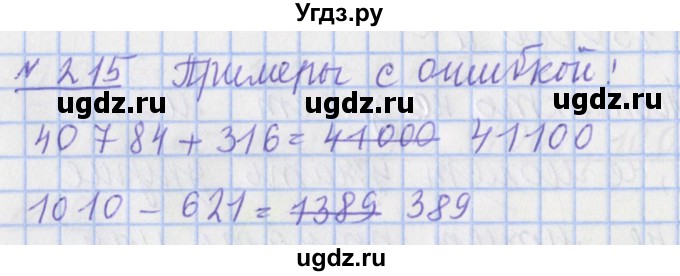 Угдз.ру
№ 215 Примеры с ошибкой!
ugdz.ru ugdz.ru
40784+316= 41000 41100
1010-621= 1389 389
ugdz.ru ugdz.ru